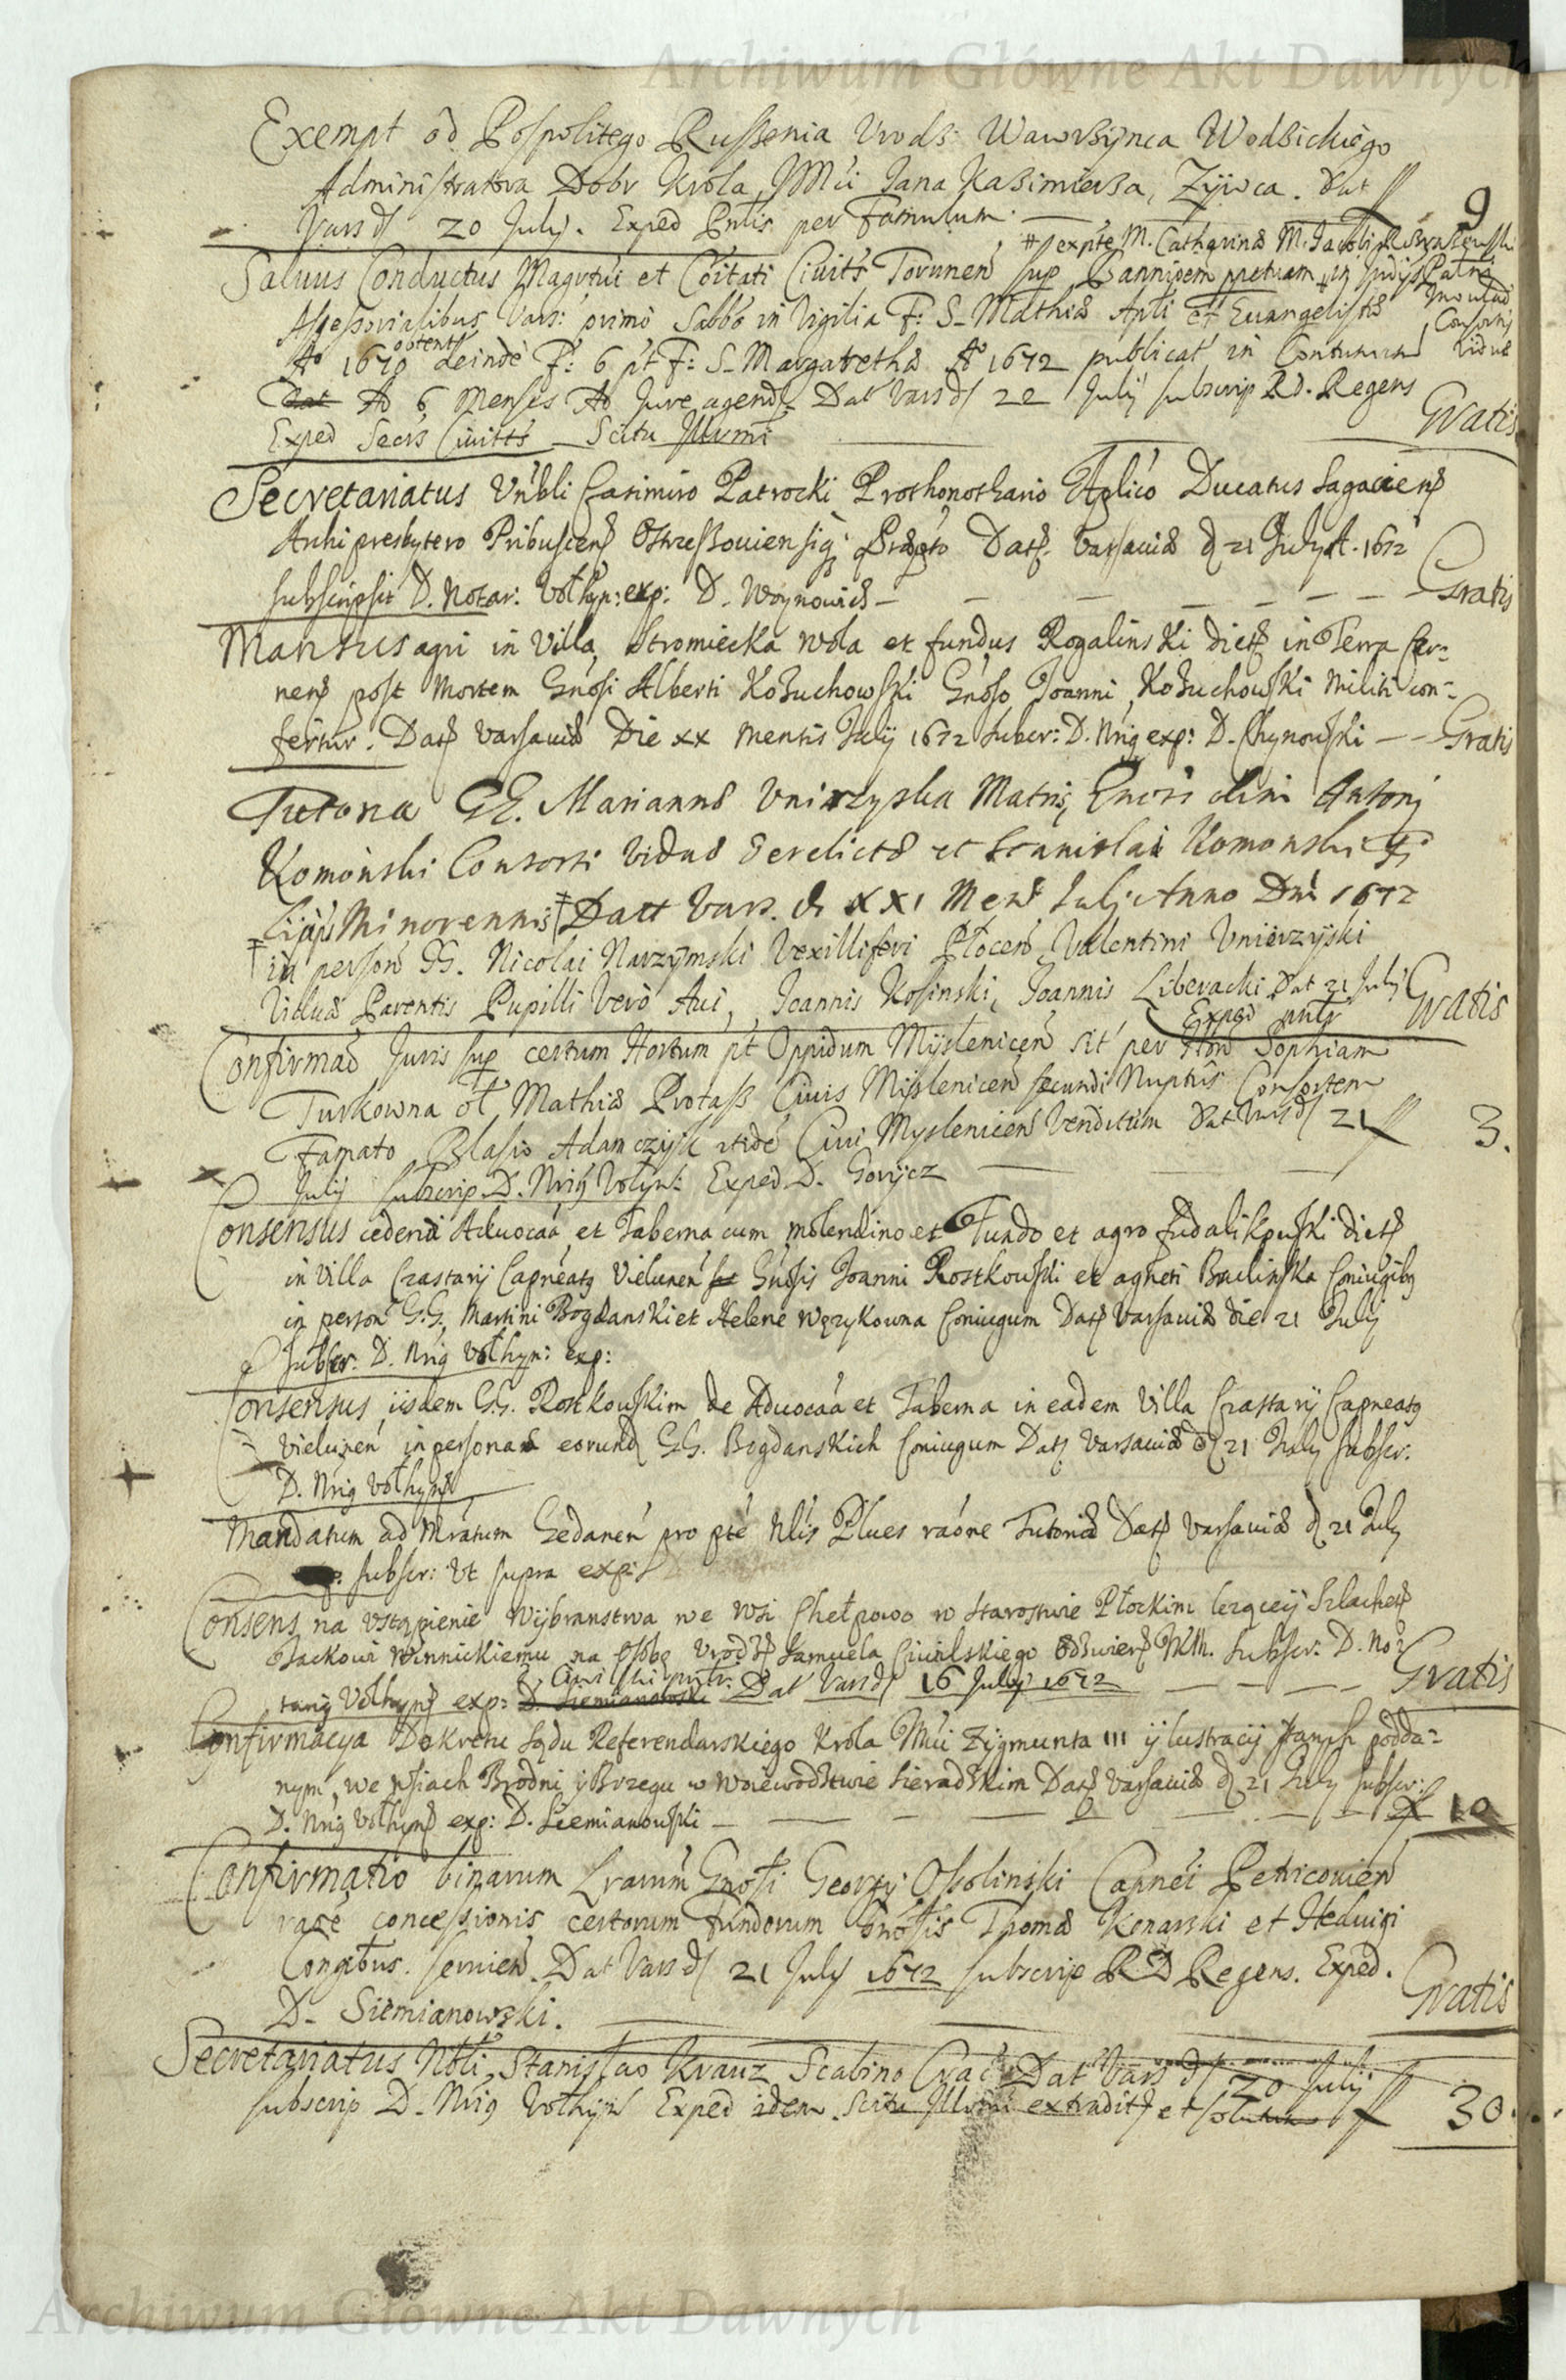 Archiwum Główne Akt Dawnych
Exempt od Pospolitego Russenia Urodz: Wawrzÿnca Wodzickiego
Administratora Dobr Krola JMći Jana Kazimierza, Zÿwca. Dat
Vars d 20 July. Exped Pntis per Famulum. 9
# expte M. Catharina M. Jacobi
Salvus Conductus Magrtui et Coitati Civitts Torunen sup Bannitem
Assessorialibus Vars: primò Sabbo in Vigilia F: S. Mathiæ Apli et Euangelistæ Consortis
Ao 1670 obtent deindè F: 6 pt F: S. Margarethæ Ao 1672 publicat in Contumam viduæ
Dat Ad 6 Menses Ad Jure agend. Dat Vars d 22 July subscrip RD. Regens
Exped Secrs Civitts Scitu Illvmi Gratis
Secretariatus Vnbli Casimiro Patrocki Prothonothario Aplico Ducatus Sagaciens
Archipresbytero Pribuscens Ostrzeßouiensiq Præpto Dat. Varsauiæ d 21 July A. 1672
subscripsit D. Notar: Vołhyn: exp: D. Woynowicz - Gratis
Mansus agri in Villa Stromiecka Wola et fundus Rogalinski dict in Terra Cer=
nens post Mortem Gnosi Alberti Kożuchowski Gnoso Joanni Kożuchowski Militi con=
fertur. Dat Varsauiæ Die xx Mensis July 1672 Subscr: D. Nrig exp: D. Chynowski - Gratis
Tutoria GE. Mariannæ Unierzyska Matris, Gnosi olim Antonj
Komonski Consorti Viduæ derelictæ et Stanislai Komonski Fi
lijqs Minorennis Datt Vars. d XXI Mens Julj Anno Dni 1672
in person GG. Nicolai Narzÿmski Vexilliferi Płocen Valentini Unierzyski
Viduæ Parentis Pupilli Verò Aui, Joannis Kosinski, Joannis Liberacki Dat 21 July Gratis
Exped
Confirmaõ Juris sup certum Hortum pt Oppidum Mÿslenicen sit per Hon Sophiam
Turkowna ol Mathiæ Protaß Ciuis Mÿslenicen secundi Nuptus Consortem
Famato Blasio Adamczÿk itide Ciui Myslenicen Venditum Dat Vars d 21 3.
July subscrip. D. Nrig Volÿn: Exped. D. Gorÿcz
Consensus cedendi Aduocaa et Taberna cum molendino et Fundo et agro
in Villa Czastary Capneats Vielunen Gnosis Joanni Rostkowski et agneti Brulinska Coniugibs
in person G.G. Martini Bogdanski et Helene Węzykowna Coniugum Dat Varsauiæ die 21 July
Subscr: D. Nrig Vołhyn: exp:
Consensus iisdem G.G. Rostkowskim de Aduocaa et Taberna in eadem Villa Czastary Capneats
Vielunen in personas eorund G.G. Bogdanskich Coniugum Dat Varsauiæ d 21 July subscr.
D. Nrig Vołhyns
Mandatum ad Mratum Gedanen pro pte Nlis Plues raõne Tutoriæ Dat Varsauiæ d 21 July
subscr: Ut supra exp:
Consens na vstąpienie Wÿbranstwa we Wsi Chełpowo w Starostwie Płockim lezącej Szlachet
Jackowi Winnickiemu na Osobę Urodz Samuela Ciuilskiego Subscr. D. No=
tarij Vołhyns exp: D. Siemianowski Dat Vars d 16 July 1672 Gratis
Confirmacya Dekretu Sądu Referendarskiego Krola JMći Zÿgmunta III ÿ lustracÿ podda=
nym, we wsiach Brodni ÿ Brzegu w Woiewodztwie Sieradzkim Dat Varsauiæ d 21 July subscr:
D. Nrig Vołhyns exp: D. Siemianowski - 10
Confirmatio binarum Lrarum Gnosi Georgÿ Ossolinski Capnei Petricouien
concessionis certorum Fundorum Gnosis Thomæ Konarski et Heduigi
Dat Vars d 21 July 1672 subscrip R.D Regens. Exped.
D. Siemianowski. Gratis
Secretariatus Nbli Stanislao Kranz Scabino Crac Dat Vars d 20 July
subscrip D. Nrig Vołhyn Exped idem. Scitu Illvmi extradit et 30.
Archiwum Główne Akt Dawnych